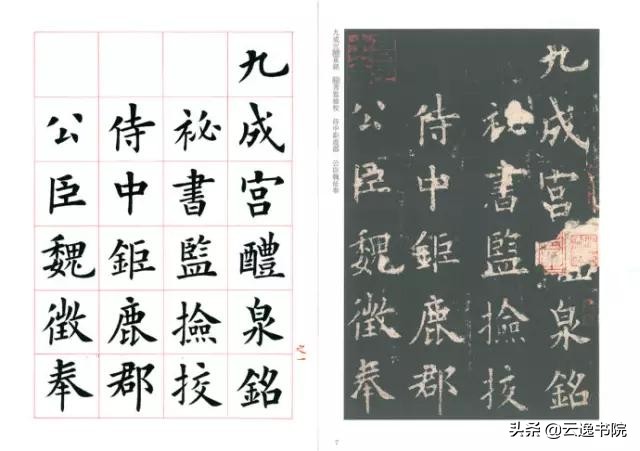 九成宮醴泉銘
祕書監撿挍
侍中鉅鹿郡
公臣魏徵奉
之一
九成宮醴泉銘 祕書監檢校 侍中鉅鹿郡 公臣魏徵奉
九成宮泉銘
祕書監撿挍
侍中鉅鹿郡
公臣魏徵奉
7
头条 @云逸书院